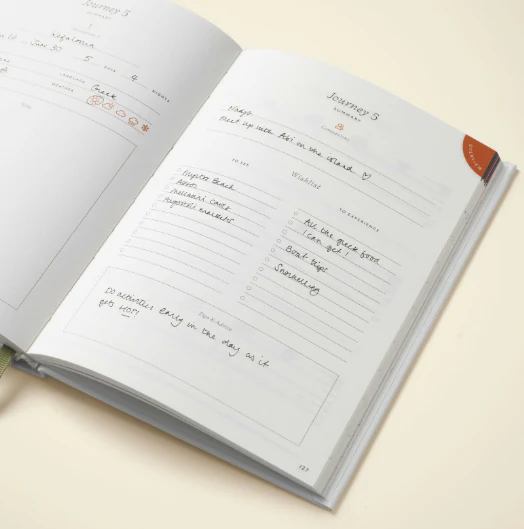 Journey 5
SUMMARY
Kefalonia
June 30
5 DAYS 4 NIGHTS
LANGUAGE Greek
WEATHER
Journey 5
SUMMARY
Companions
Meet up with Abi on the island
Wishlist
TO SEE
Beach
Melissani Caves
Argostoli markets
TO EXPERIENCE
All the greek food
I can get!
Boat trips
Snorkelling
Tips & Advice
Do activities early in the day as it
gets HOT!
OVERVIEW
127